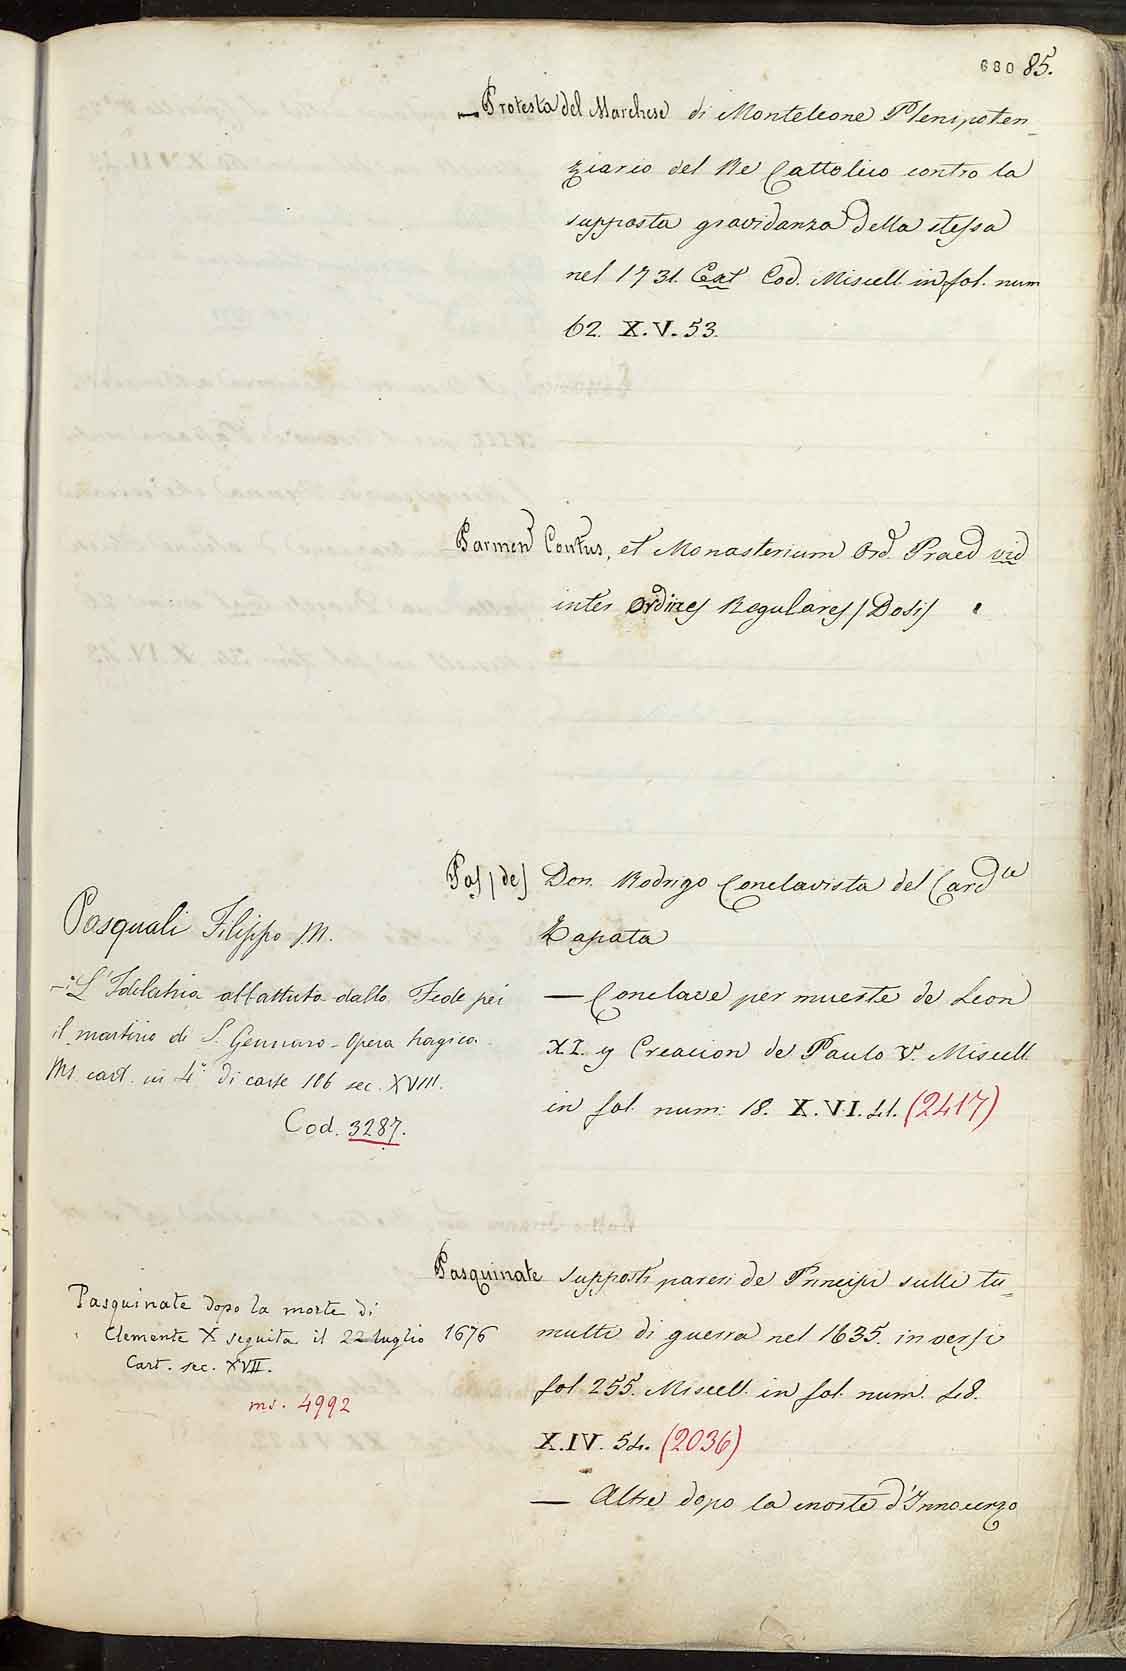 680 85.
— Protesta del Marchese di Monteleone Plenipoten_
ziario del Re Cattolico contro la
supposta gravidanza della stessa
nel 1731. Ext Cod. Miscell. in fol. num
62. X.V.53.
Parmen Contus, et Monasterium Ord. Praed vid
inter Ordines Regulares / Dosi /
Pas / de / Don. Rodrigo Conclavista del Card.le
Zapata
— Conclave per mueste de Leon
XI. y Creacion de Paulo V. Miscell.
in fol. num: 18. X.VI.41. (2417)
Pasquali Filippo M.
-: L'Idolatria abbattuta dalla Fede pei
il martirio di S. Gennaro - Opera tragica.
Ms. cart. in 4° di carte 106 sec. XVIII.
Cod. 3287.
Pasquinate supposti pareri de Principi sulli tu_
multi di guerra nel 1635. in versi
fol. 255. Miscell. in fol. num. 48.
X.IV. 54. (2036)
— Altre dopo la morte d'Innocenzo
Pasquinate dopo la morte di
Clemente X seguita il 22 luglio 1676
Cart. sec. XVII.
ms. 4992